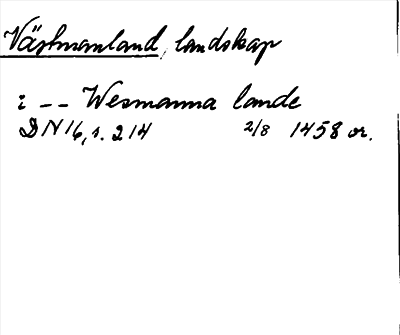 Västmanland, landskap
i -- Wesmanna lande
DN 16, s. 214 2/8 1458 or.